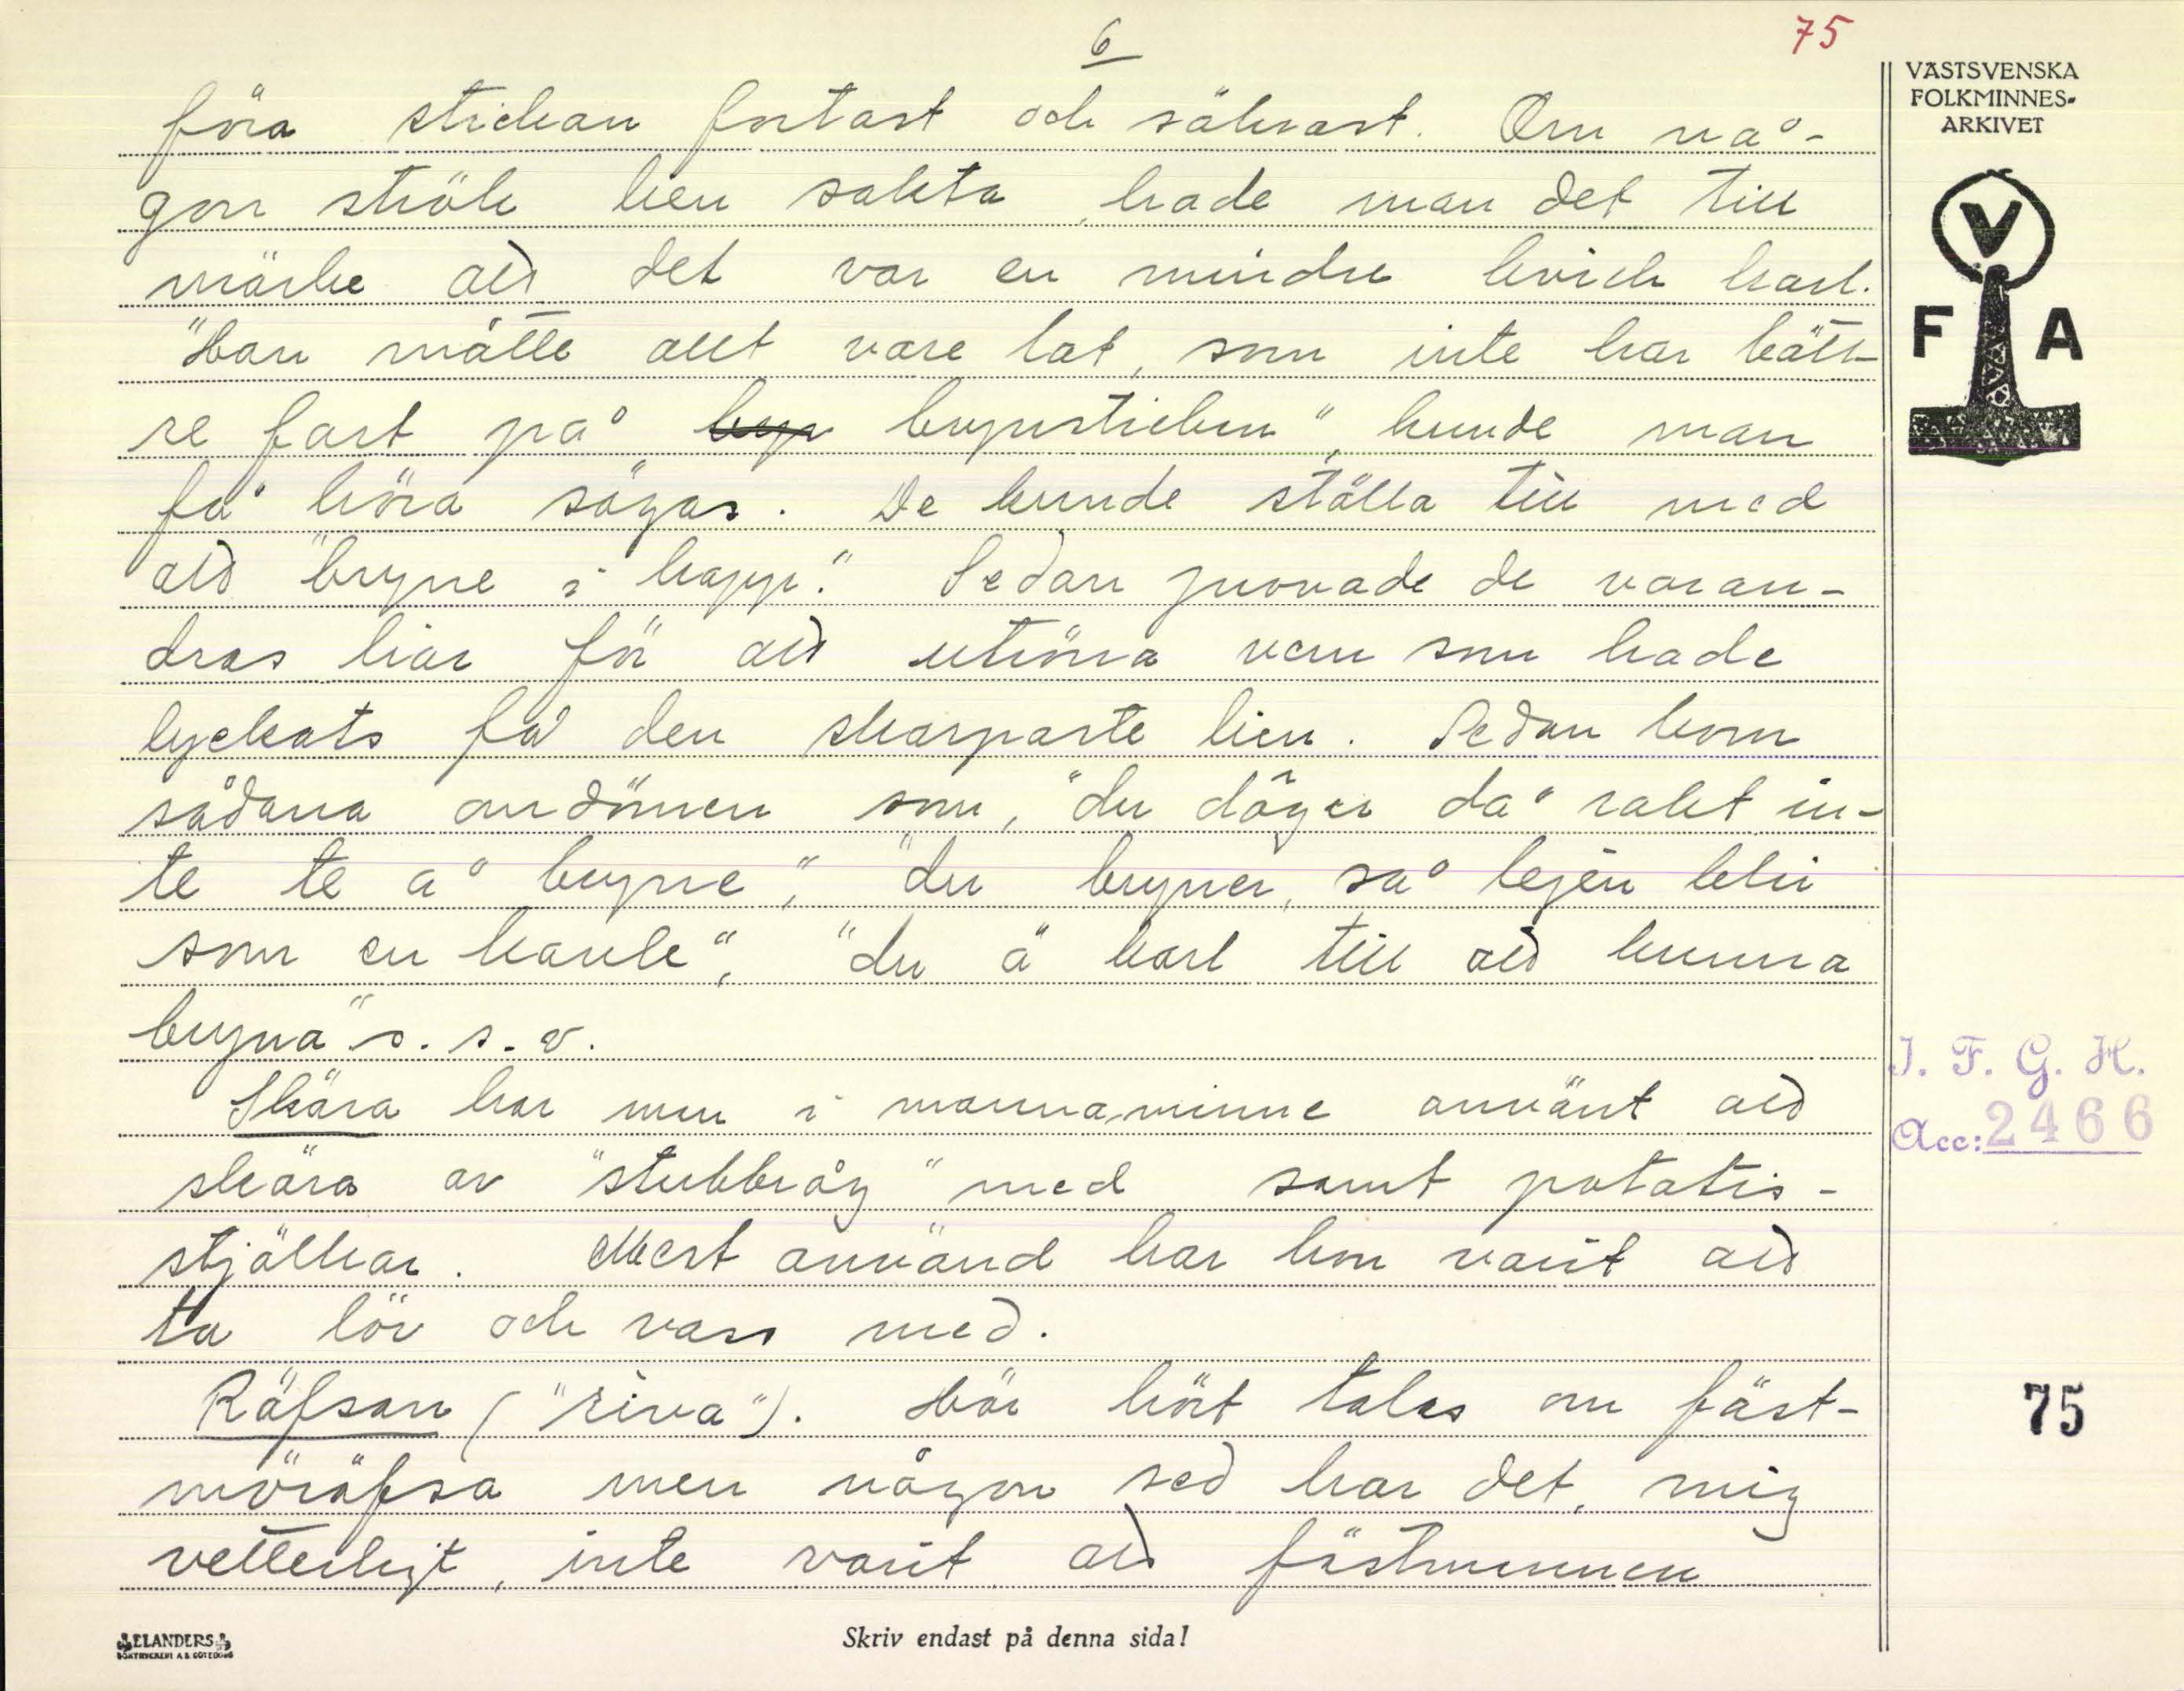 6
75
VÄSTSVENSKA
FOLKMINNES-
ARKIVET
V
F A
föra stickan fortast och säkrast. Om nå-
gon strök lien sakta, hade man det till
märke att det var en mindre kvick karl.
"Han måtte allt vare lat, som inte har bätt-
re fart på bryn brynsticken", kunde man
få höra sägas. De kunde ställa till med
att "bryne i kapp." Sedan provade de varan-
dras liar för att utröna vem som hade
lyckats få den skarpaste lien. Sedan kom
sådana omdömen som, "du döger då rakt in-
te te å bryne", "du bryner, så lejen blir
som en kavle", "du ä karl till att kunna
bryna" o. s. v.
Skära har man i mannaminne använt att
skära av "stubbråg" med samt potatis-
stjälkar. Mest använd har hon varit att
ta löv och vass med.
Räfsan ("riva"). Här hört talas om fäst-
möräfsa men någon sed har det, mig
vetterligt, inte varit att fästmannen
I. F. G. H.
Acc: 2466
75
ELANDERS
BOKTRYCKERI A.B. GÖTEBORG
Skriv endast på denna sida!